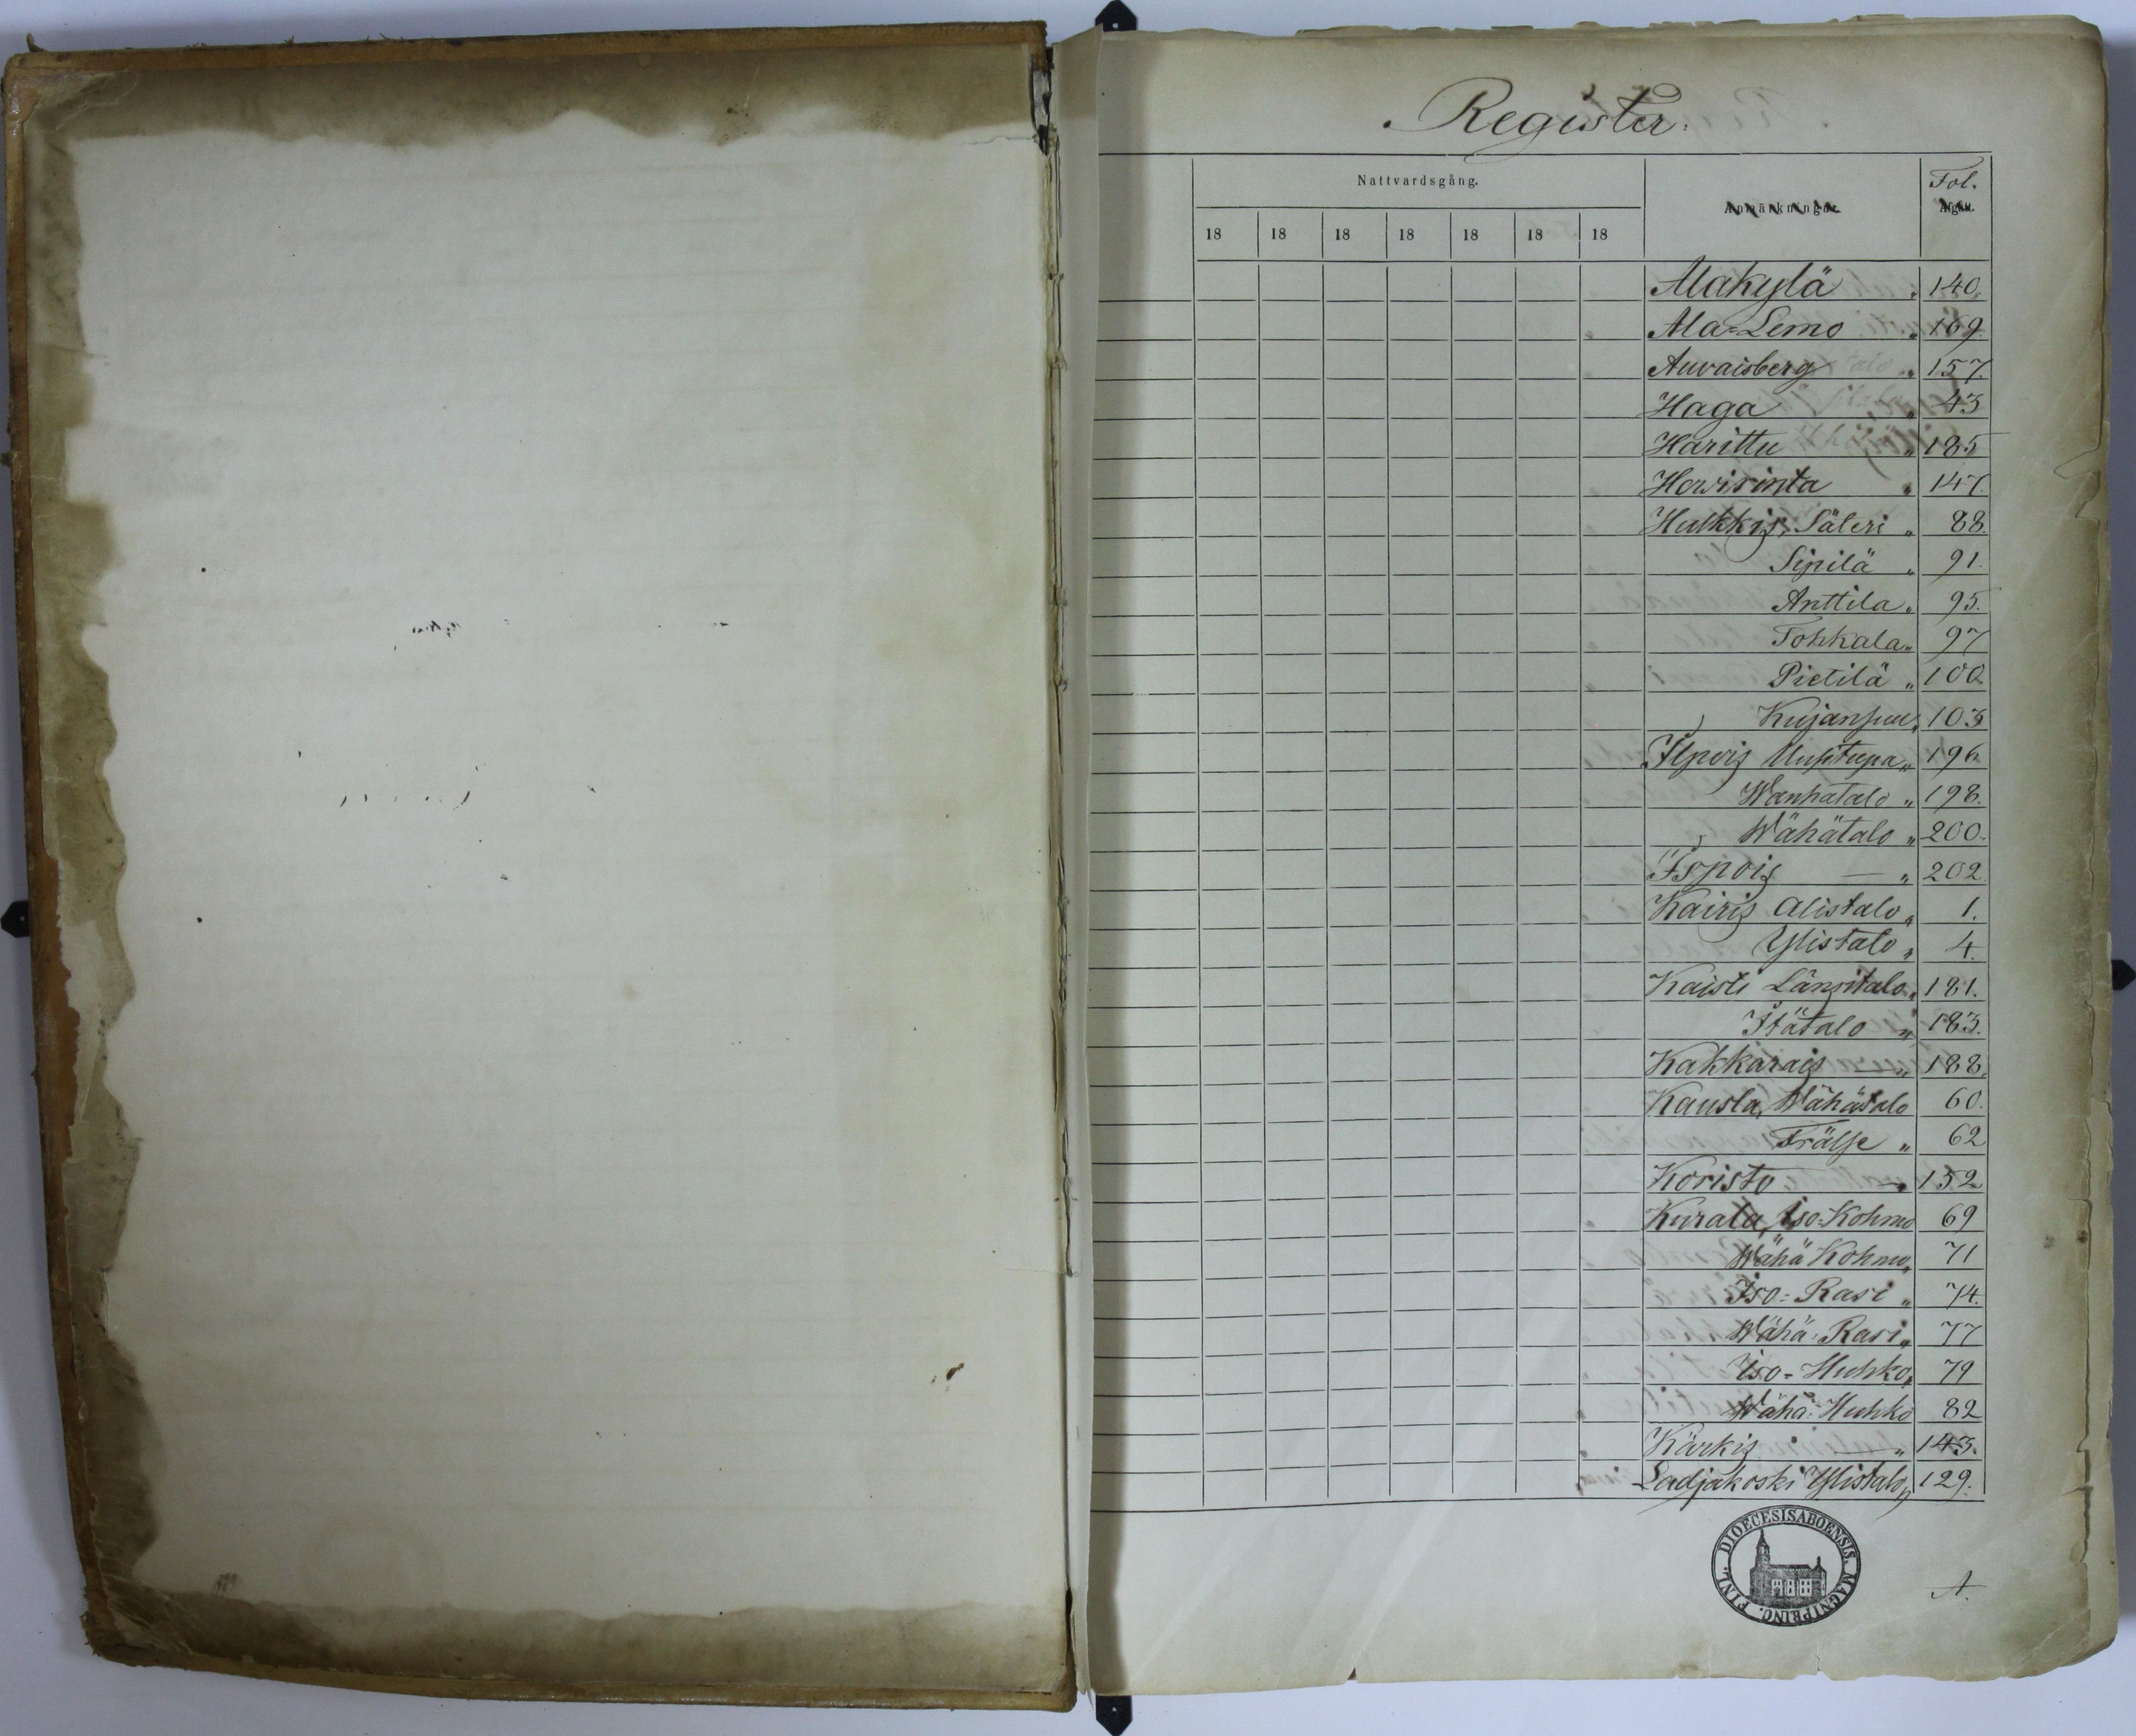 Register.
Nattvardsgång.
Anmärkningar.
Fol.
Afgån.
18 18 18 18 18 18 18
Alakylä „ 140.
Ala-Lemo „ 169.
Auvaisberg „ 157.
Haga „ 43
Harittu „ 185
Howirinta „ 147.
Hulkkis, Säteri „ 88.
Sipilä „ 91.
Anttila „ 95.
Tohkala „ 97
Pietilä „ 100.
Kujanpuu „ 103
Ilpois Uusitupa „ 196.
Wanhatalo „ 198.
Wähätalo „ 200.
Ispois — „ 202.
Kairis Alistalo „ 1.
Ylistalo „ 4.
Kaisti Länsitalo „ 181.
Itätalo „ 183.
Kakkarais — „ 188.
Kausta, Wähätalo 60.
Frälse „ 62
Koristo — „ 152
Kurala, Iso-Kohmo 69
Wähä Kohmo „ 71
Iso-Rasi „ 74.
Wähä-Rasi „ 77
Iso-Huhko „ 79
Wähä-Huhko 82
Kärkis — „ 143.
Ladjakoski Ylistalo „ 129.
DIOECESIS ABOENSIS. MAGNI PRINC. FINL.
A.